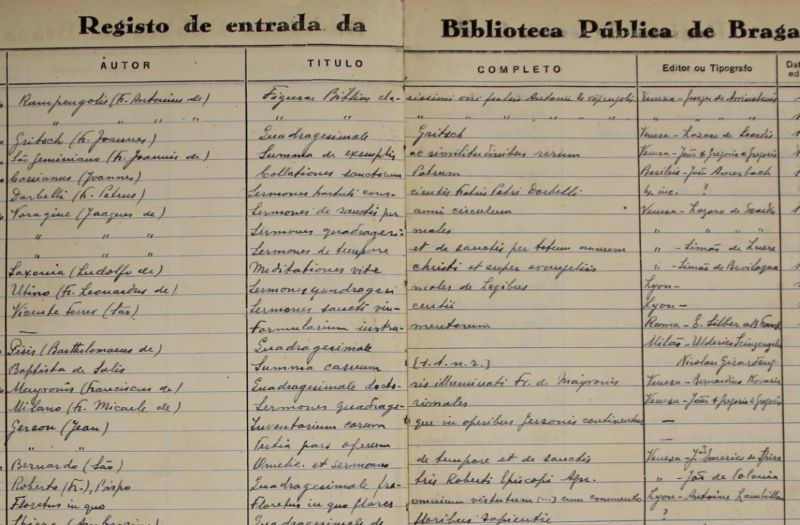 Registo de entrada da Biblioteca Pública de Braga
AUTOR TITULO COMPLETO Editor ou Tipografo
Rampengolis (Fr. Antonius de) Figurae Bibliae cla- rissimi viri fratris Antonii de Veneza - 
" " " " " " " " " " " " "
Gritsch (Fr. Joannes) Quadragesimale Gritsch Veneza - Lazaro de Soardis
São Geminiano (Fr. Joannis de) Summa de exemplis ac similitudinibus rerum Veneza - João & Gregorio de Gregoriis
Cassianus (Joannes) Collationes sanctorum Patrum Basileia - João Amerbach
Darbelli (Fr. Petrus) Sermones Fratris Petri Darbelli ?
Voragine (Jacques de) Sermones de sanctis per anni circulum Veneza - Lazaro de Soardis
" " " Sermones quadragesi- males " " " "
Sermones de tempore et de sanctis per totum annum " - Simão de Luere
Saxonia (Ludolfo de) Meditationes vite christi et super evangeliis " - Simão de Bevilaqua
Utino (Fr. Leonardus de) Sermones quadragesi males de Legibus Lyon -
Vicente Ferrer (São) Sermones sancti vin- centii Lyon -
— Formularium instru- mentorum Roma - E. Silber
Pisis (Bartholomaeus de) Quadragesimale Milão - Ulderico Scinzenzeler
Baptista de Salis Summa casuum [s.t.n.r.] Nicolau Girardeng.
Mayronis (Franciscus de) Quadragesimale docto- ris illuminati Fr. de Mayronis Veneza - Bernardino Novari
Milano (Fr. Micaele de) Sermones quadrage- simales Veneza - João & Gregorio de Gregoriis
Gerson (Jean) Inventarium earum que in operibus Gersonis continentur —
" " Tertia pars operum —
Bernardo (São) Omelie et Sermones de tempore et de sanctis Veneza -
Roberto (Fr.), Bispo Quadragesimale fra- tris Roberti Episcopi " - João de Colonia
Floretus in quo Floretus in quo flores omnium virtutum (...) cum commento Lyon - Antoine Lambillon
Quadragesimale de floribus sapientie ?